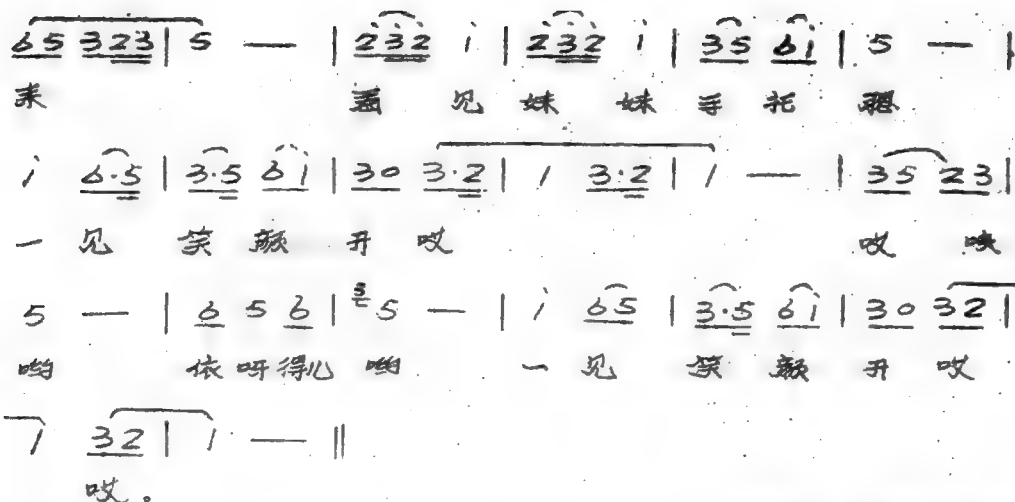 6 5 3 2 3 | 5 — | 2̇ 3̇ 2̇ i̇ | 2̇ 3̇ 2̇ i̇ | 3 5 6 i̇ | 5 — |
来 见 妹 妹 手 托
i̇ 6·5 | 3·5 6 i̇ | 3 0 3·2 | 1 3·2 | 1 — | 3 5 2 3 |
一 见 笑 颜 开 哎 哎
5 — | 6 5 6 | 5 5 — | i̇ 6 5 | 3·5 6 i̇ | 3 0 3 2 |
哟 依 呀 得儿 哟 一 见 笑 颜 开 哎
1 3 2 | 1 — ‖
哎 。